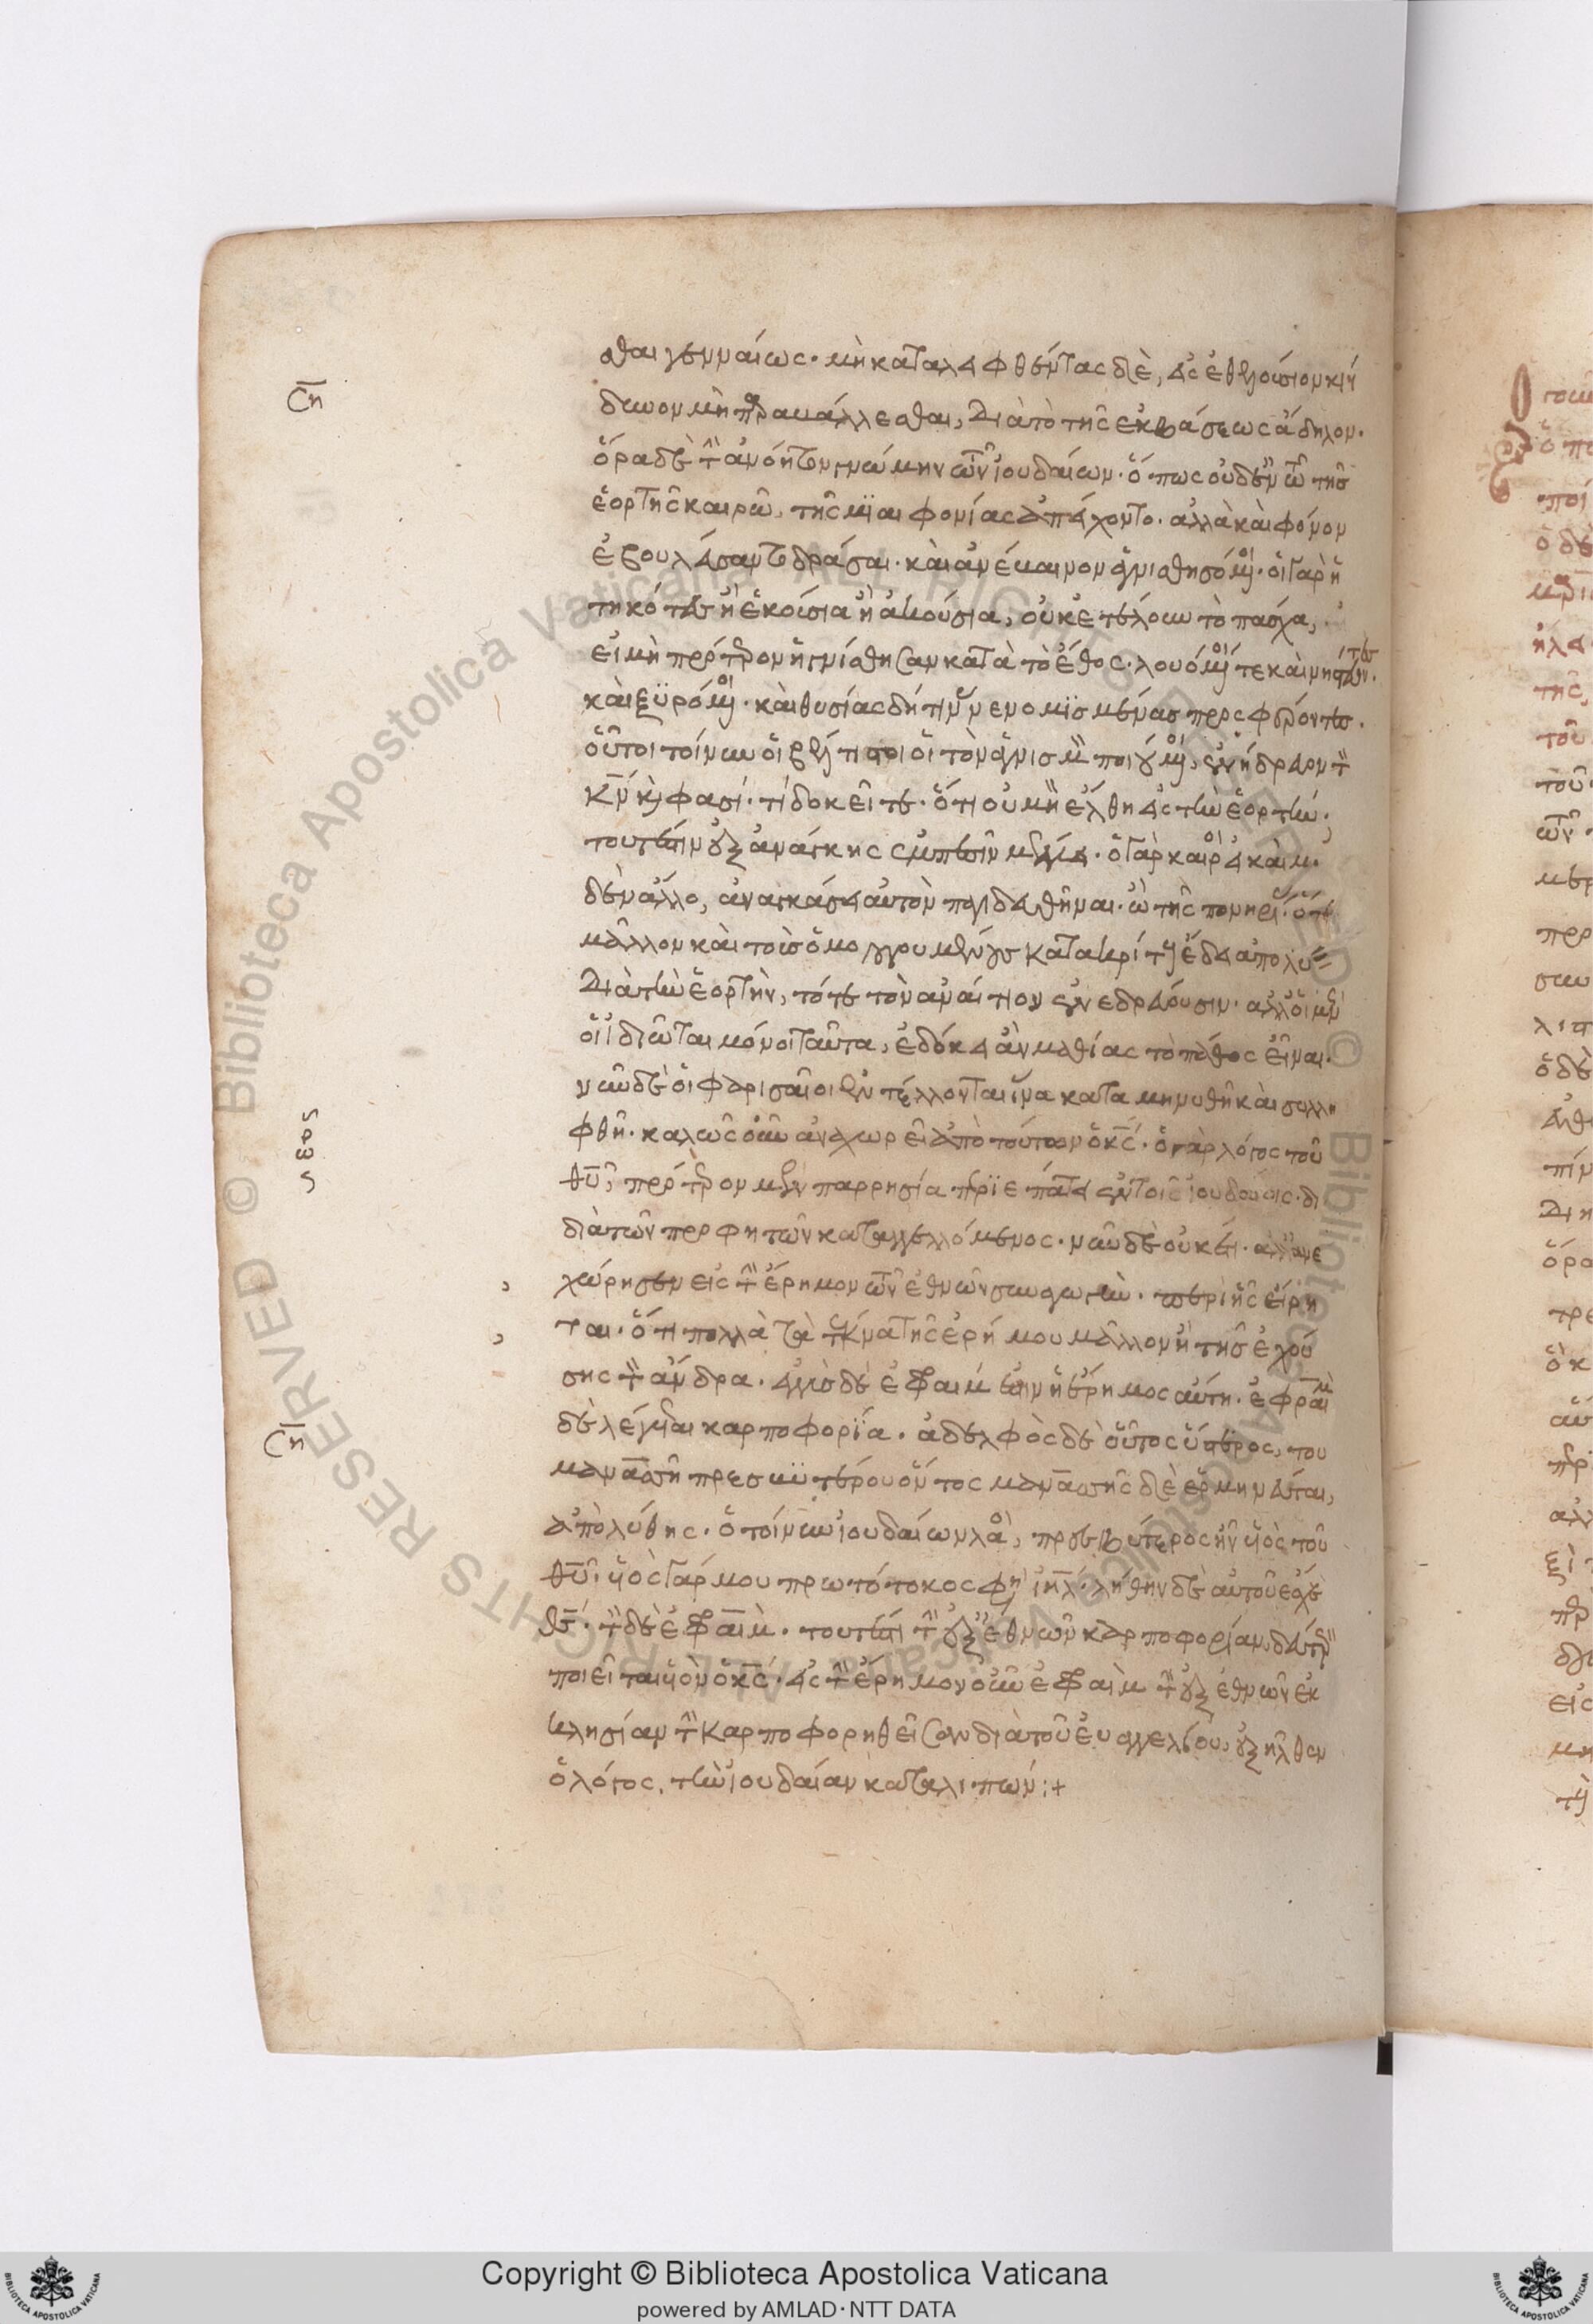 σθαι γενναίως· μὴ καταληφθέντας δὲ, εἰς ἑκούσιον κίν
δυνον μὴ παραβάλλεσθαι, διὰ τὸ τῆς ἐκβάσεως ἄδηλον·
ὅρα δὲ τὴν ἀνόητον γνώμην τῶν ἰουδαίων· ὅπως οὐδὲ ἐν τῷ τῆς
ἑορτῆς καιρῶ, τῆς μιαιφονίας ἀπείχοντο· ἀλλὰ καὶ φόνον
ἐβουλεύσαντο δρᾶσαι· καὶ ἀνέβαινον ἁγνισθησόμενοι· οἱ γὰρ ἡμαρ
τηκότες ἢ ἑκούσια ἢ ἀκούσια, οὐκ ἐτέλουν τὸ πάσχα,
εἰ μὴ πρότερον ἡγνίσθησαν κατὰ τὸ ἔθος· λουόμενοί τε καὶ νηστεύοντες·
καὶ ξυρόμενοι· καὶ θυσίας δή τινας νενομισμένας προσφέροντες·
οὗτοι τοίνυν οἱ τὸν ἁγνισμὸν ποιούμενοι, ἐνήδρευον τὸν
κν καί φασί· τί δοκεῖτε· ὅτι οὐ μὴ ἔλθη εἰς τὴν ἑορτήν;
τουτέστιν ἐξ ἀνάγκης ἐμπεσεῖν μέλλει· ὁ γὰρ καιρὸς εἰ καὶ μη
δὲν ἄλλο, ἀναγκάσει αὐτὸν· ὢ τῆς πονηρίας· ὅτε
μᾶλλον καὶ τοὺς ὁμολογουμένους κατακρίτους ἔδει ἀπολύειν
διὰ τὴν ἑορτὴν, τότε τὸν ἀναίτιον ἐνεδρεύουσιν· ἀλλ' εἰ μὲν
οἱ ἰδιῶται μόνοι ταῦτα, ἐδόκει ἂν ἀμαθίας τὸ πάθος εἶναι·
νῦν δὲ οἱ φαρισαῖοι ἐντέλλονται ἵνα καταμηνυθῆ καὶ συλλη
φθῆ· καλῶς οὖν ἀναχωρεῖ ἀπὸ τούτων ὁ κς· ὁ γὰρ λόγος τοῦ
θυ, πρότερον μὲν παρρησία περιεπάτει ἐν τοῖς ἰουδαίοις·
διὰ τῶν προφητῶν καταγγελλόμενος· νῦν δὲ οὐκέτι· ἀλλ' ἀνε
χώρησεν εἰς τὴν ἔρημον τῶν ἐθνῶν συναγωγὴν· περὶ ἧς εἴρη
ται· ὅτι πολλὰ τὰ τέκνα τῆς ἐρήμου μᾶλλον ἢ τῆς ἐχού
σης τὸν ἄνδρα· ἐγγὺς δὲ ἐφραὶμ ἐστὶν ἡ ἔρημος αὕτη· ἐφραὶμ
δὲ λέγεται καρποφορία· ἀδελφὸς δὲ οὗτος ὕστερος, τοῦ
μανασσῆ πρεσβυτέρου ὄντος· μανασσῆς δὲ ἑρμηνεύεται,
ἀπὸ λήθης· ὁ τοίνυν ἰουδαίων λαὸς, πρεσβύτερος ἦν υἱὸς τοῦ
θυ· υἱὸς γάρ μου πρωτότοκος φησὶν ιηλ· λήθην δὲ αὐτοῦ ἔσχεν ὁ
θς· τὸν δὲ ἐφραὶμ· τουτέστι τὴν ἐξ ἐθνῶν καρποφορίαν, δεύτερον
ποιεῖται υἱὸν ὁ κς· εἰς τὴν ἔρημον οὖν ἐφραὶμ τὴν ἐξ ἐθνῶν ἐκ
κλησίαν τὴν καρποφορηθεῖσαν διὰ τοῦ εὐαγγελίου, ἐξῆλθεν
ὁ λόγος, τὴν ἰουδαίαν καταλιπών:+
Copyright © Biblioteca Apostolica Vaticana
powered by AMLAD·NTT DATA